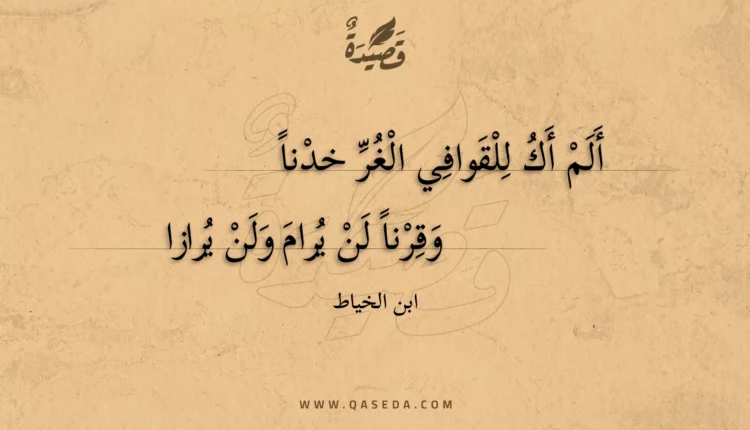 قَصِيْدَةٌ
أَلَمْ أَكُ لِلْقَوافِي الْغُرِّ خدْناً
وَقِرْناً لَنْ يُرامَ وَلَنْ يُرازا
ابن الخياط
WWW.QASEDA.COM